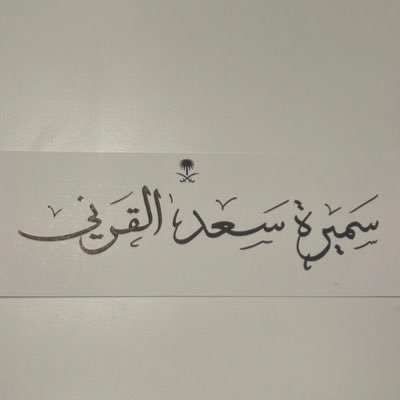 سَميرة سَعد القَرني